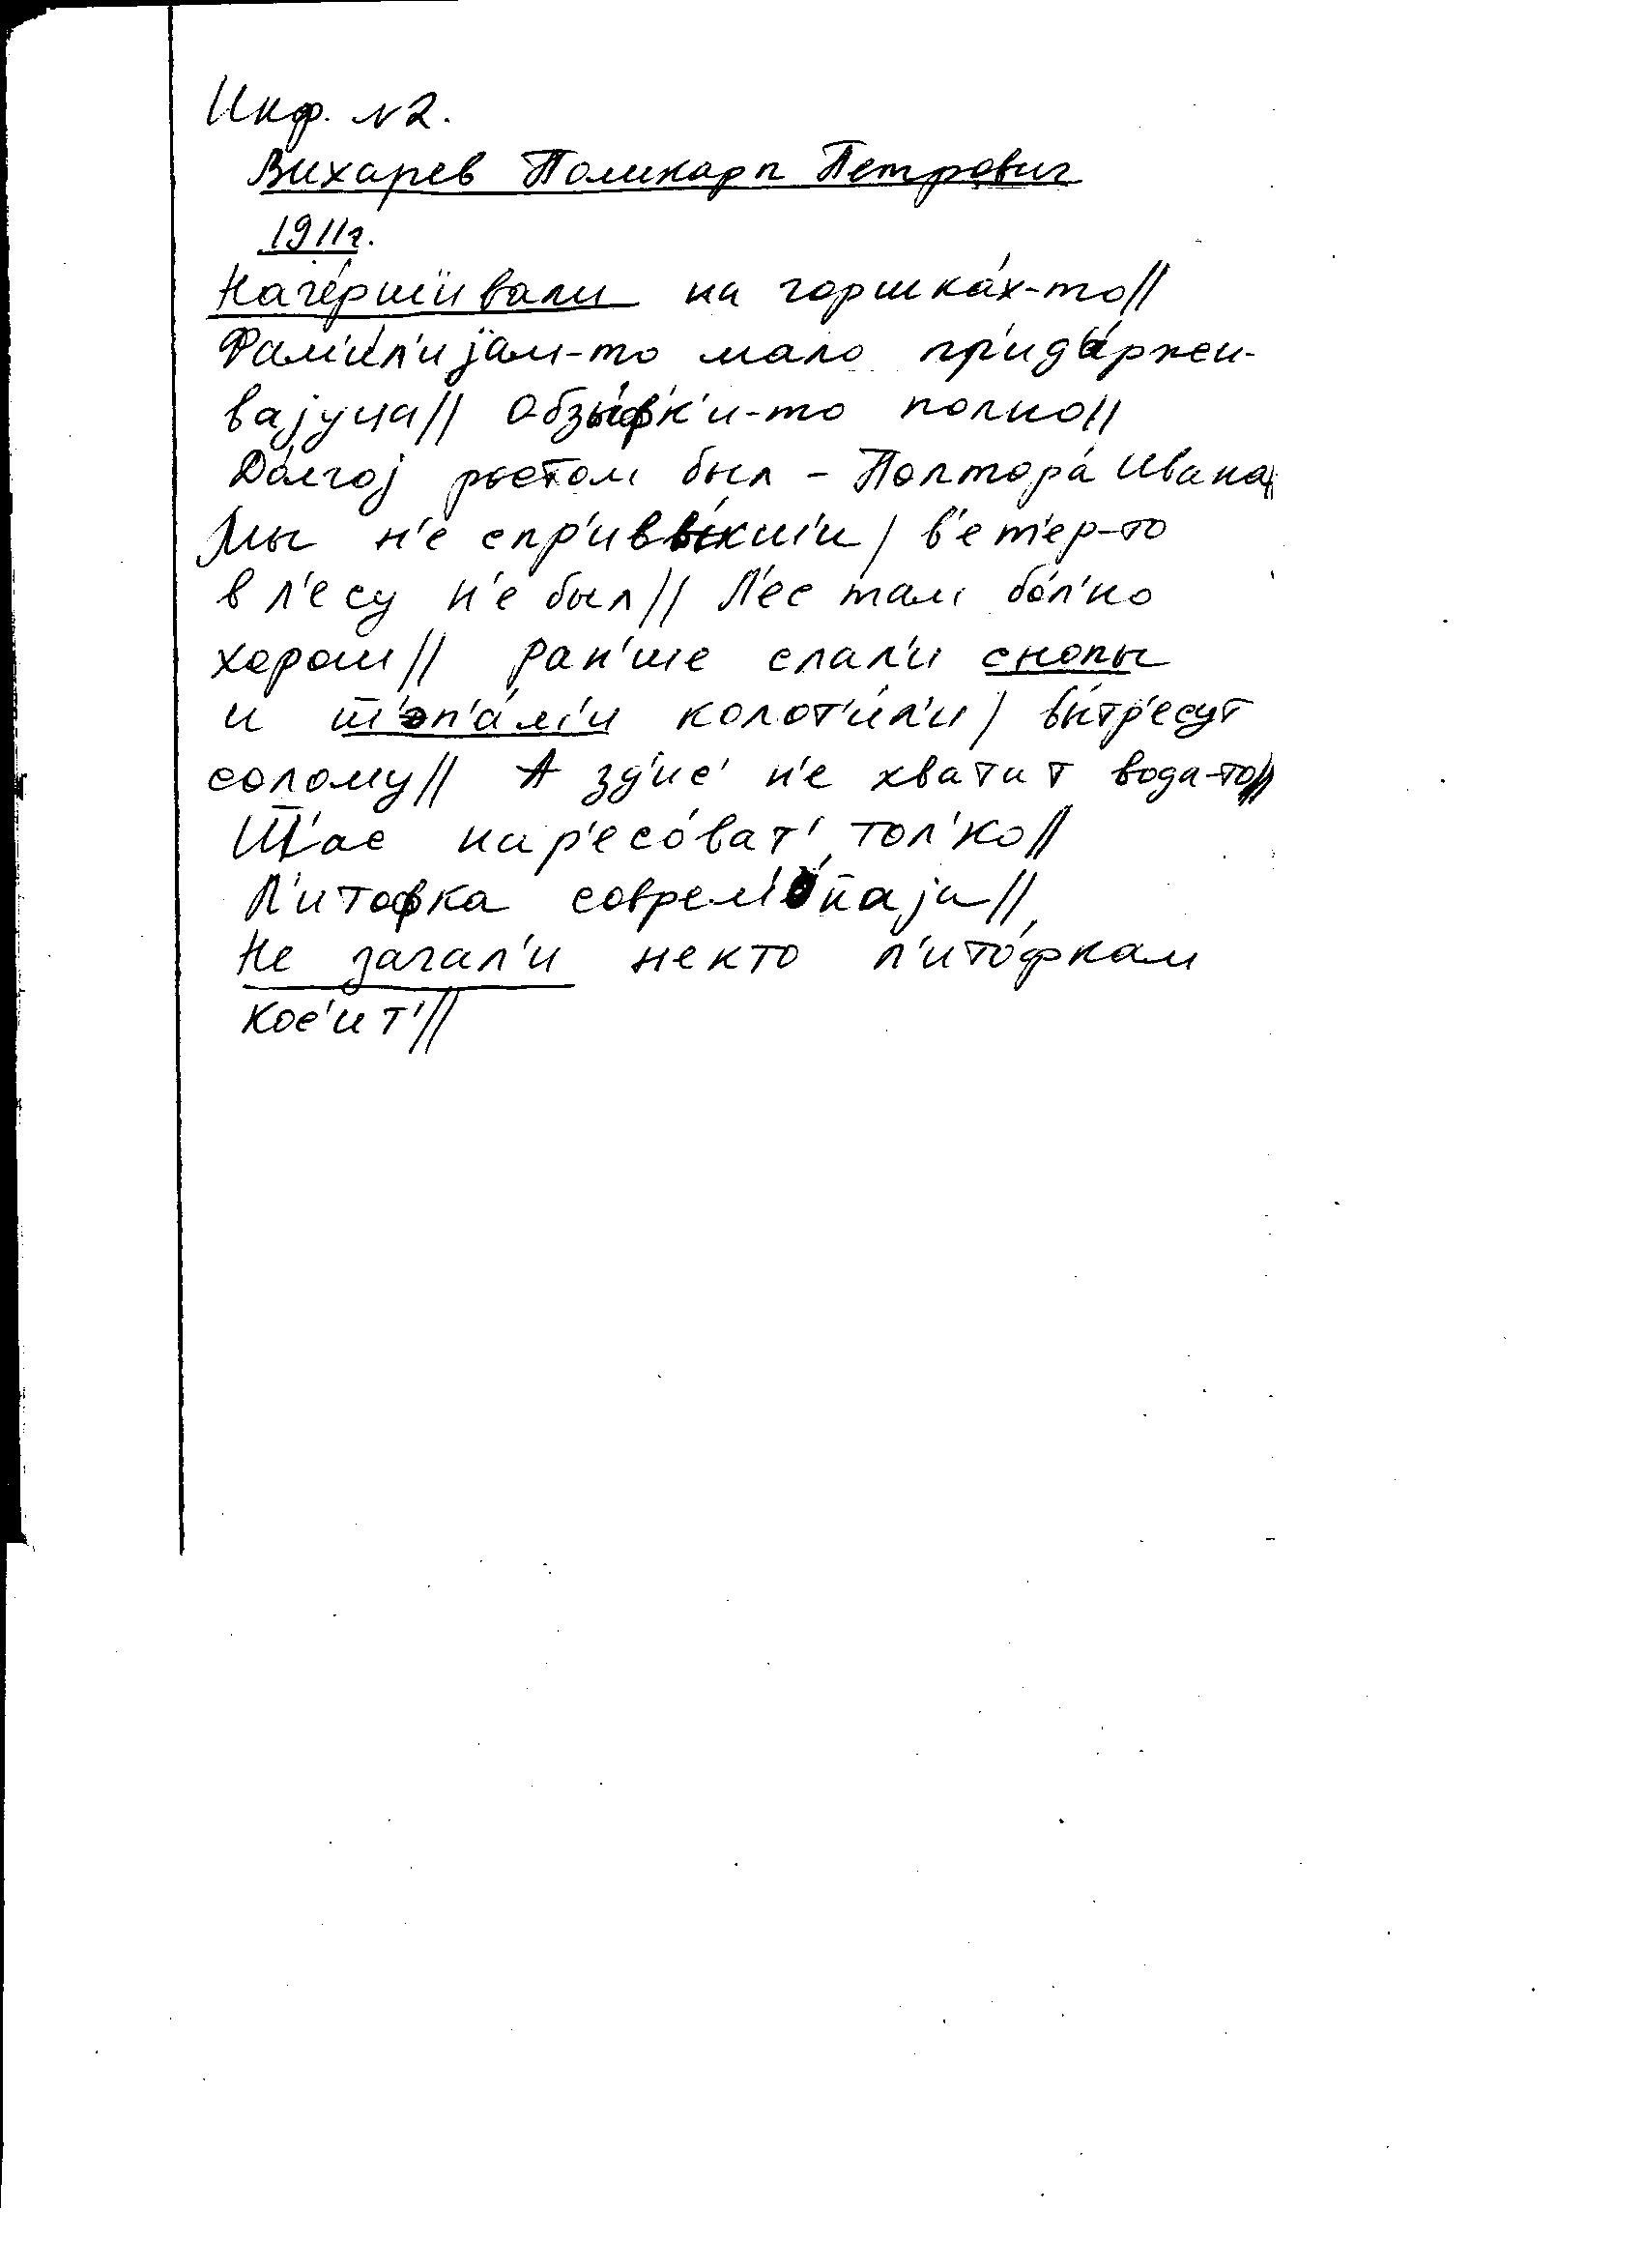 Инф. №2.
Вихарев Поликарп Петрович
1911г.
Наче́ршивали на горшка́х-то//
Фам'и́л'иjам-то мало пр'иды́ржи-
вајуца// Обзы́фк'и-то полно//
До́лгој ростом был - Полтора́ Ивана//
Мы н'е спр'ивы́кш'и/ в'ет'ер-то
в л'есу н'е был// Л'ес там бо́л'но
хорош// Ран'ше слал'и снопы
и т'эп'а́м'и колот'и́л'и/ вы́тр'есут
солому// А зд'ис' н'е хватит вода-то//
Ш'ас нар'есо́ват' тол'ко//
Л'итофка соврем'о́наја//
Не зачал'и некто л'ито́фкам
кос'ит'//